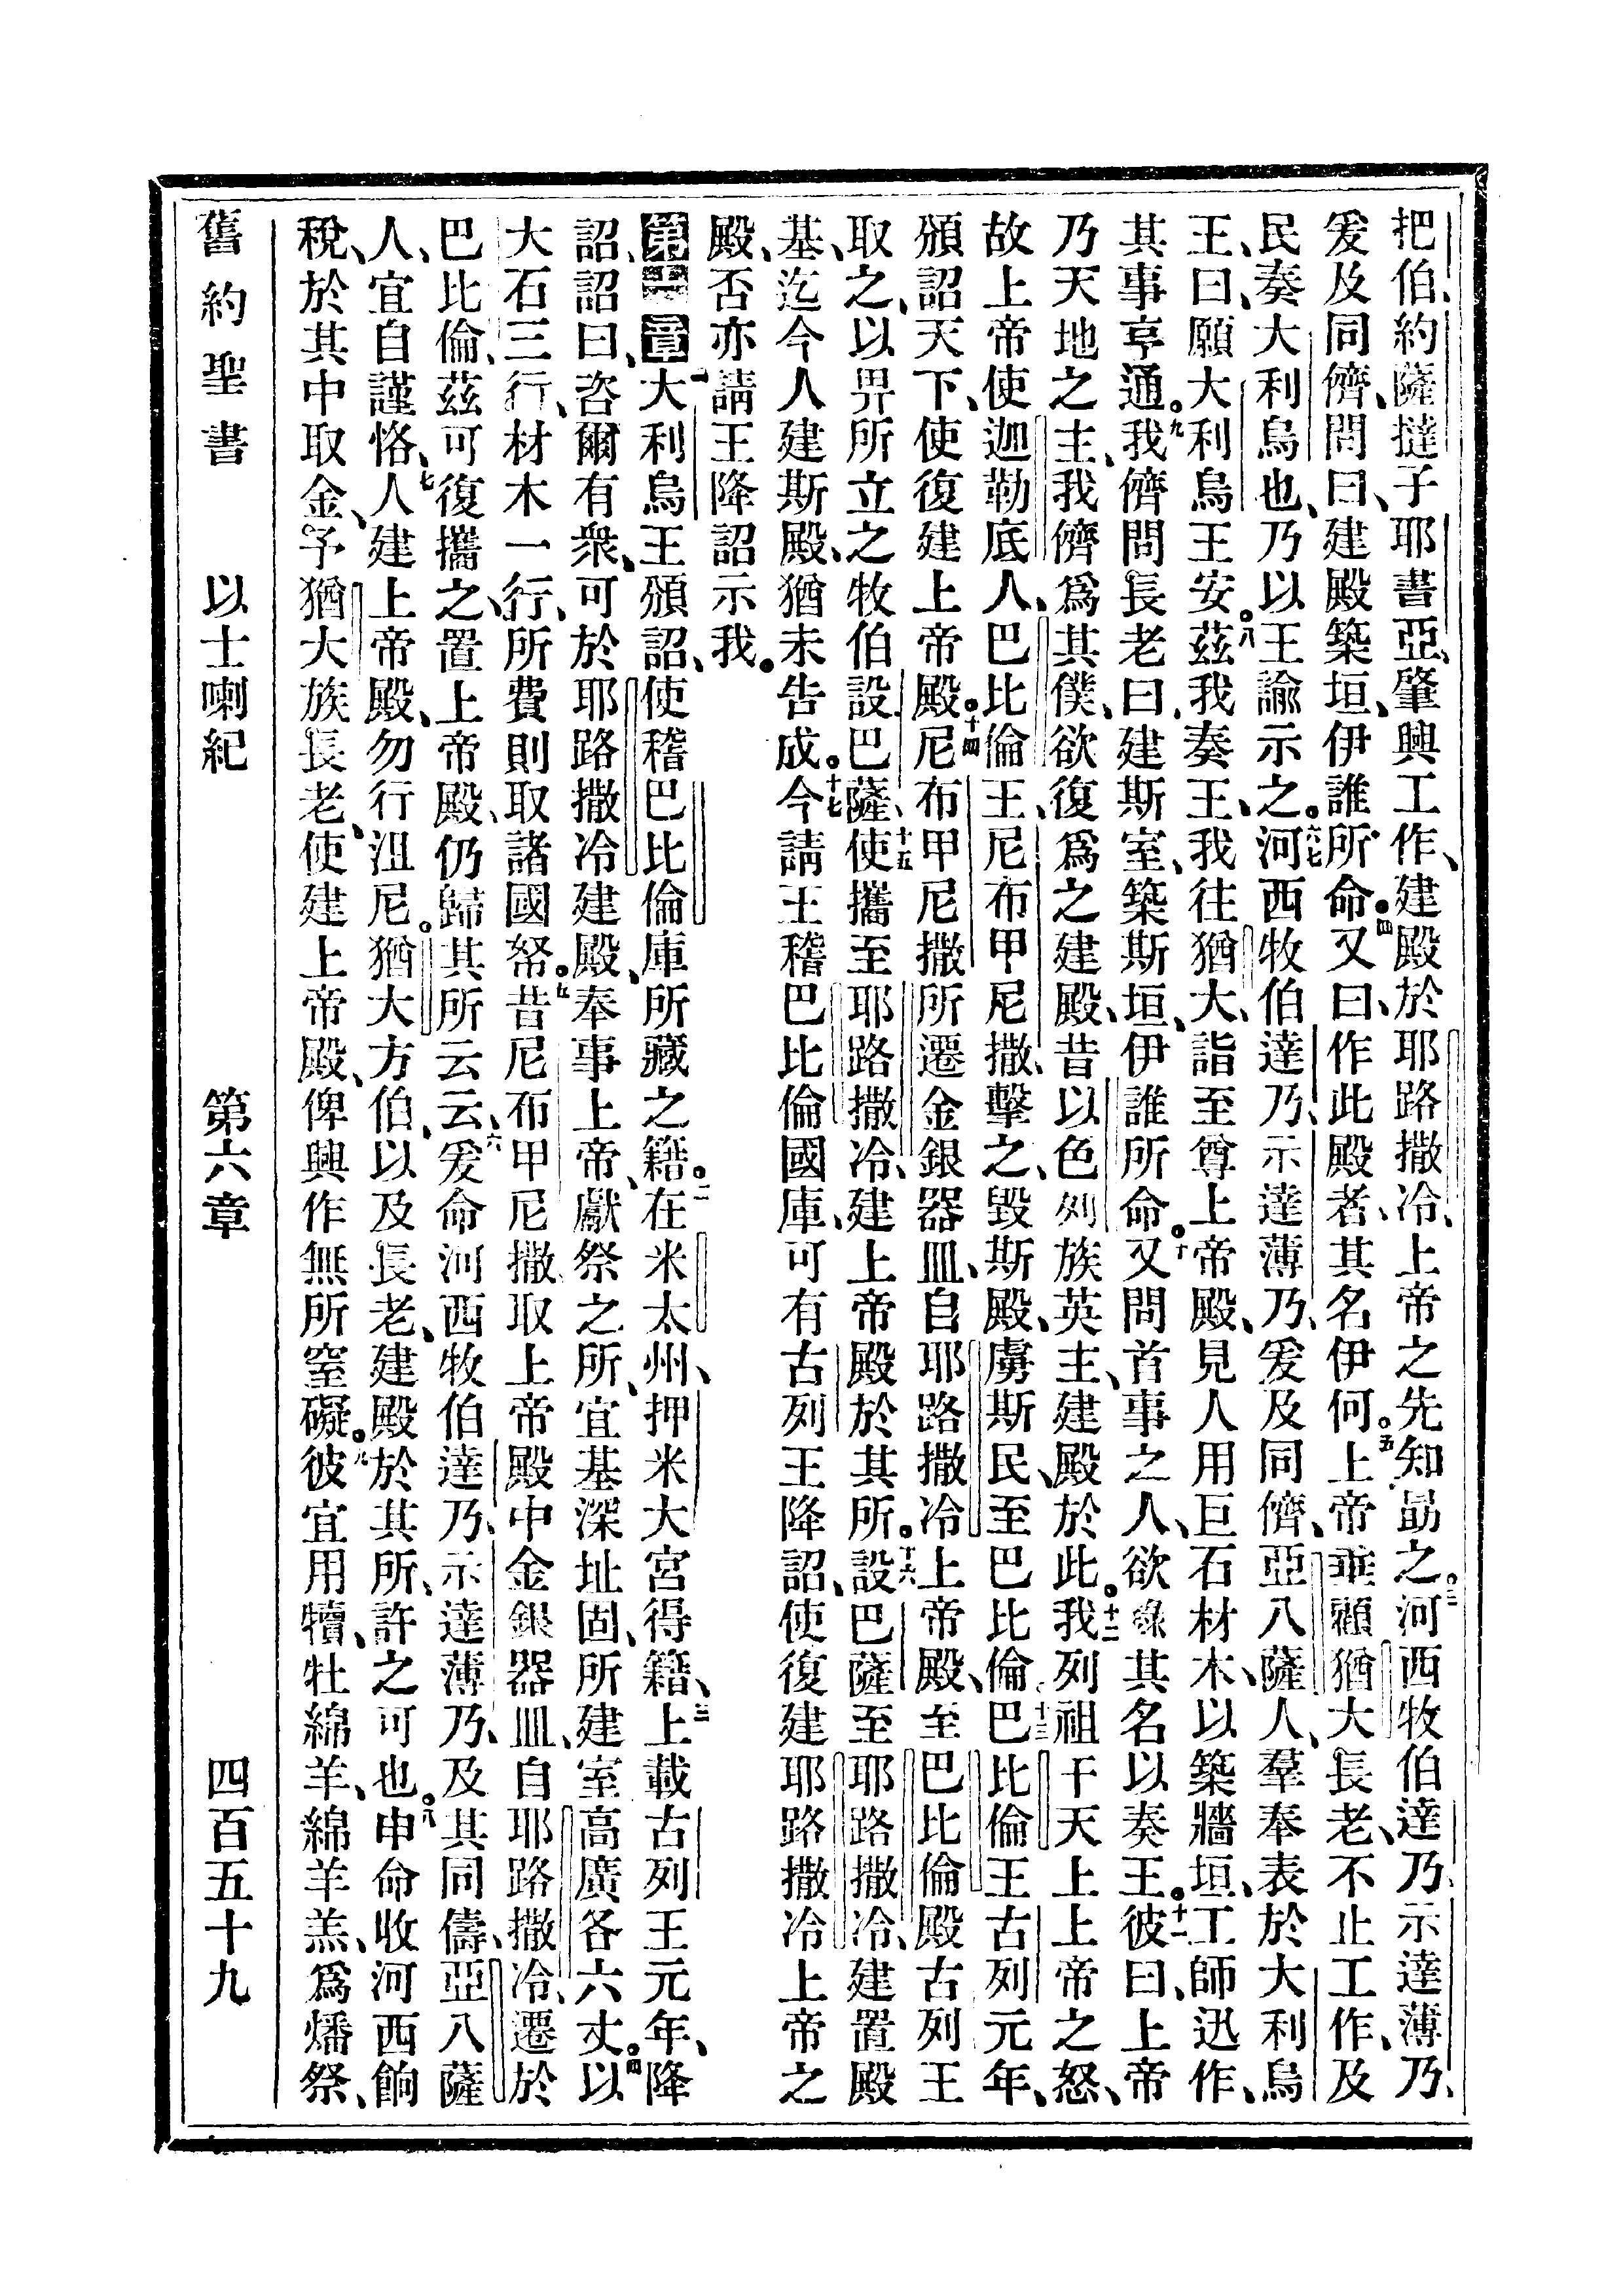 把伯、約薩撻子耶書亞、肇興工作、建殿於耶路撒冷、上帝之先知勗之。三河西牧伯達乃、示達薄乃、
爰及同儕、問曰、建殿築垣、伊誰所命。四又曰、作此殿者、其名伊何。五上帝垂顧猶大長老、不止工作、及
民奏大利烏也、乃以王諭示之。六七河西牧伯達乃、示達薄乃、爰及同儕、亞八薩人、羣奉表於大利烏
王、曰、願大利烏王安。八茲我奏王、我往猶大、詣至尊上帝殿、見人用巨石材木、以築牆垣、工師迅作、
其事亨通。九我儕問長老曰、建斯室、築斯垣、伊誰所命。十又問首事之人、欲錄其名以奏王。十一彼曰、上帝
乃天地之主、我儕爲其僕、欲復爲之建殿、昔以色列族英主、建殿於此。十二我列祖干天上上帝之怒、
故上帝使迦勒底人、巴比倫王、尼布甲尼撒、擊之、毀斯殿、虜斯民、至巴比倫。十三巴比倫王古列元年、
頒詔天下、使復建上帝殿。十四尼布甲尼撒所遷金銀器皿、自耶路撒冷上帝殿、至巴比倫殿古列王
取之、以畀所立之牧伯設巴薩、十五使攜至耶路撒冷、建上帝殿於其所。十六設巴薩至耶路撒冷、建置殿
基、迄今人建斯殿、猶未告成。十七今請王稽巴比倫國庫、可有古列王降詔、使復建耶路撒冷上帝之
殿、否亦請王降詔示我。
第六章一大利烏王頒詔、使稽巴比倫庫所藏之籍。二在米太州、押米大宮得籍、三上載古列王元年、降
詔、詔曰、咨爾有衆、可於耶路撒冷建殿、奉事上帝、獻祭之所、宜基深址固、所建室高廣各六丈。四以
大石三行、材木一行、所費則取諸國帑。五昔尼布甲尼撒、取上帝殿中金銀器皿、自耶路撒冷、遷於
巴比倫、茲可復攜之、置上帝殿、仍歸其所云云、六爰命河西牧伯達乃、示達薄乃、及其同儔、亞八薩
人、宜自謹恪、七人建上帝殿、勿行沮尼。猶大方伯、以及長老、建殿於其所、許之可也。八申命收河西餉
稅、於其中取金、予猶大族長老、使建上帝殿、俾興作無所窒礙。九彼宜用犢、牡綿羊、綿羊羔、爲燔祭、
舊約聖書 以士喇紀 第六章 四百五十九